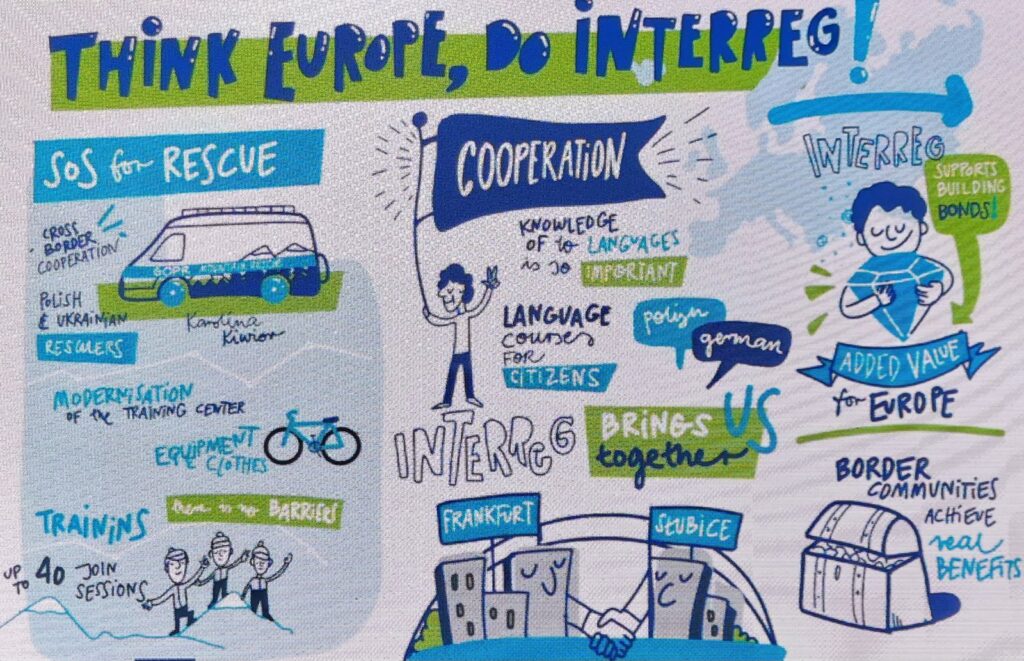 THINK EUROPE, DO INTERREG!
SOS for RESCUE
CROSS
BORDER
COOPERATION
GOPR MOUNTAIN RESCUE
POLISH
& UKRAINIAN
RESCUERS
Karolina
Kiwior
MODERNISATION
OF the TRAINING CENTER
EQUIPMENT
& CLOTHES
TRAININS
there is no BARRIERS
UP
TO 40 JOIN
SESSIONS
COOPERATION
KNOWLEDGE
OF to LANGUAGES
is so IMPORTANT
LANGUAGE
COURSES
FOR
CITIZENS
polish
german
INTERREG
BRINGS
together
US
FRANKFURT
SŁUBICE
INTERREG
SUPPORTS
BUILDING
BONDS!
ADDED VALUE
for EUROPE
BORDER
COMMUNITIES
ACHIEVE
real
BENEFITS